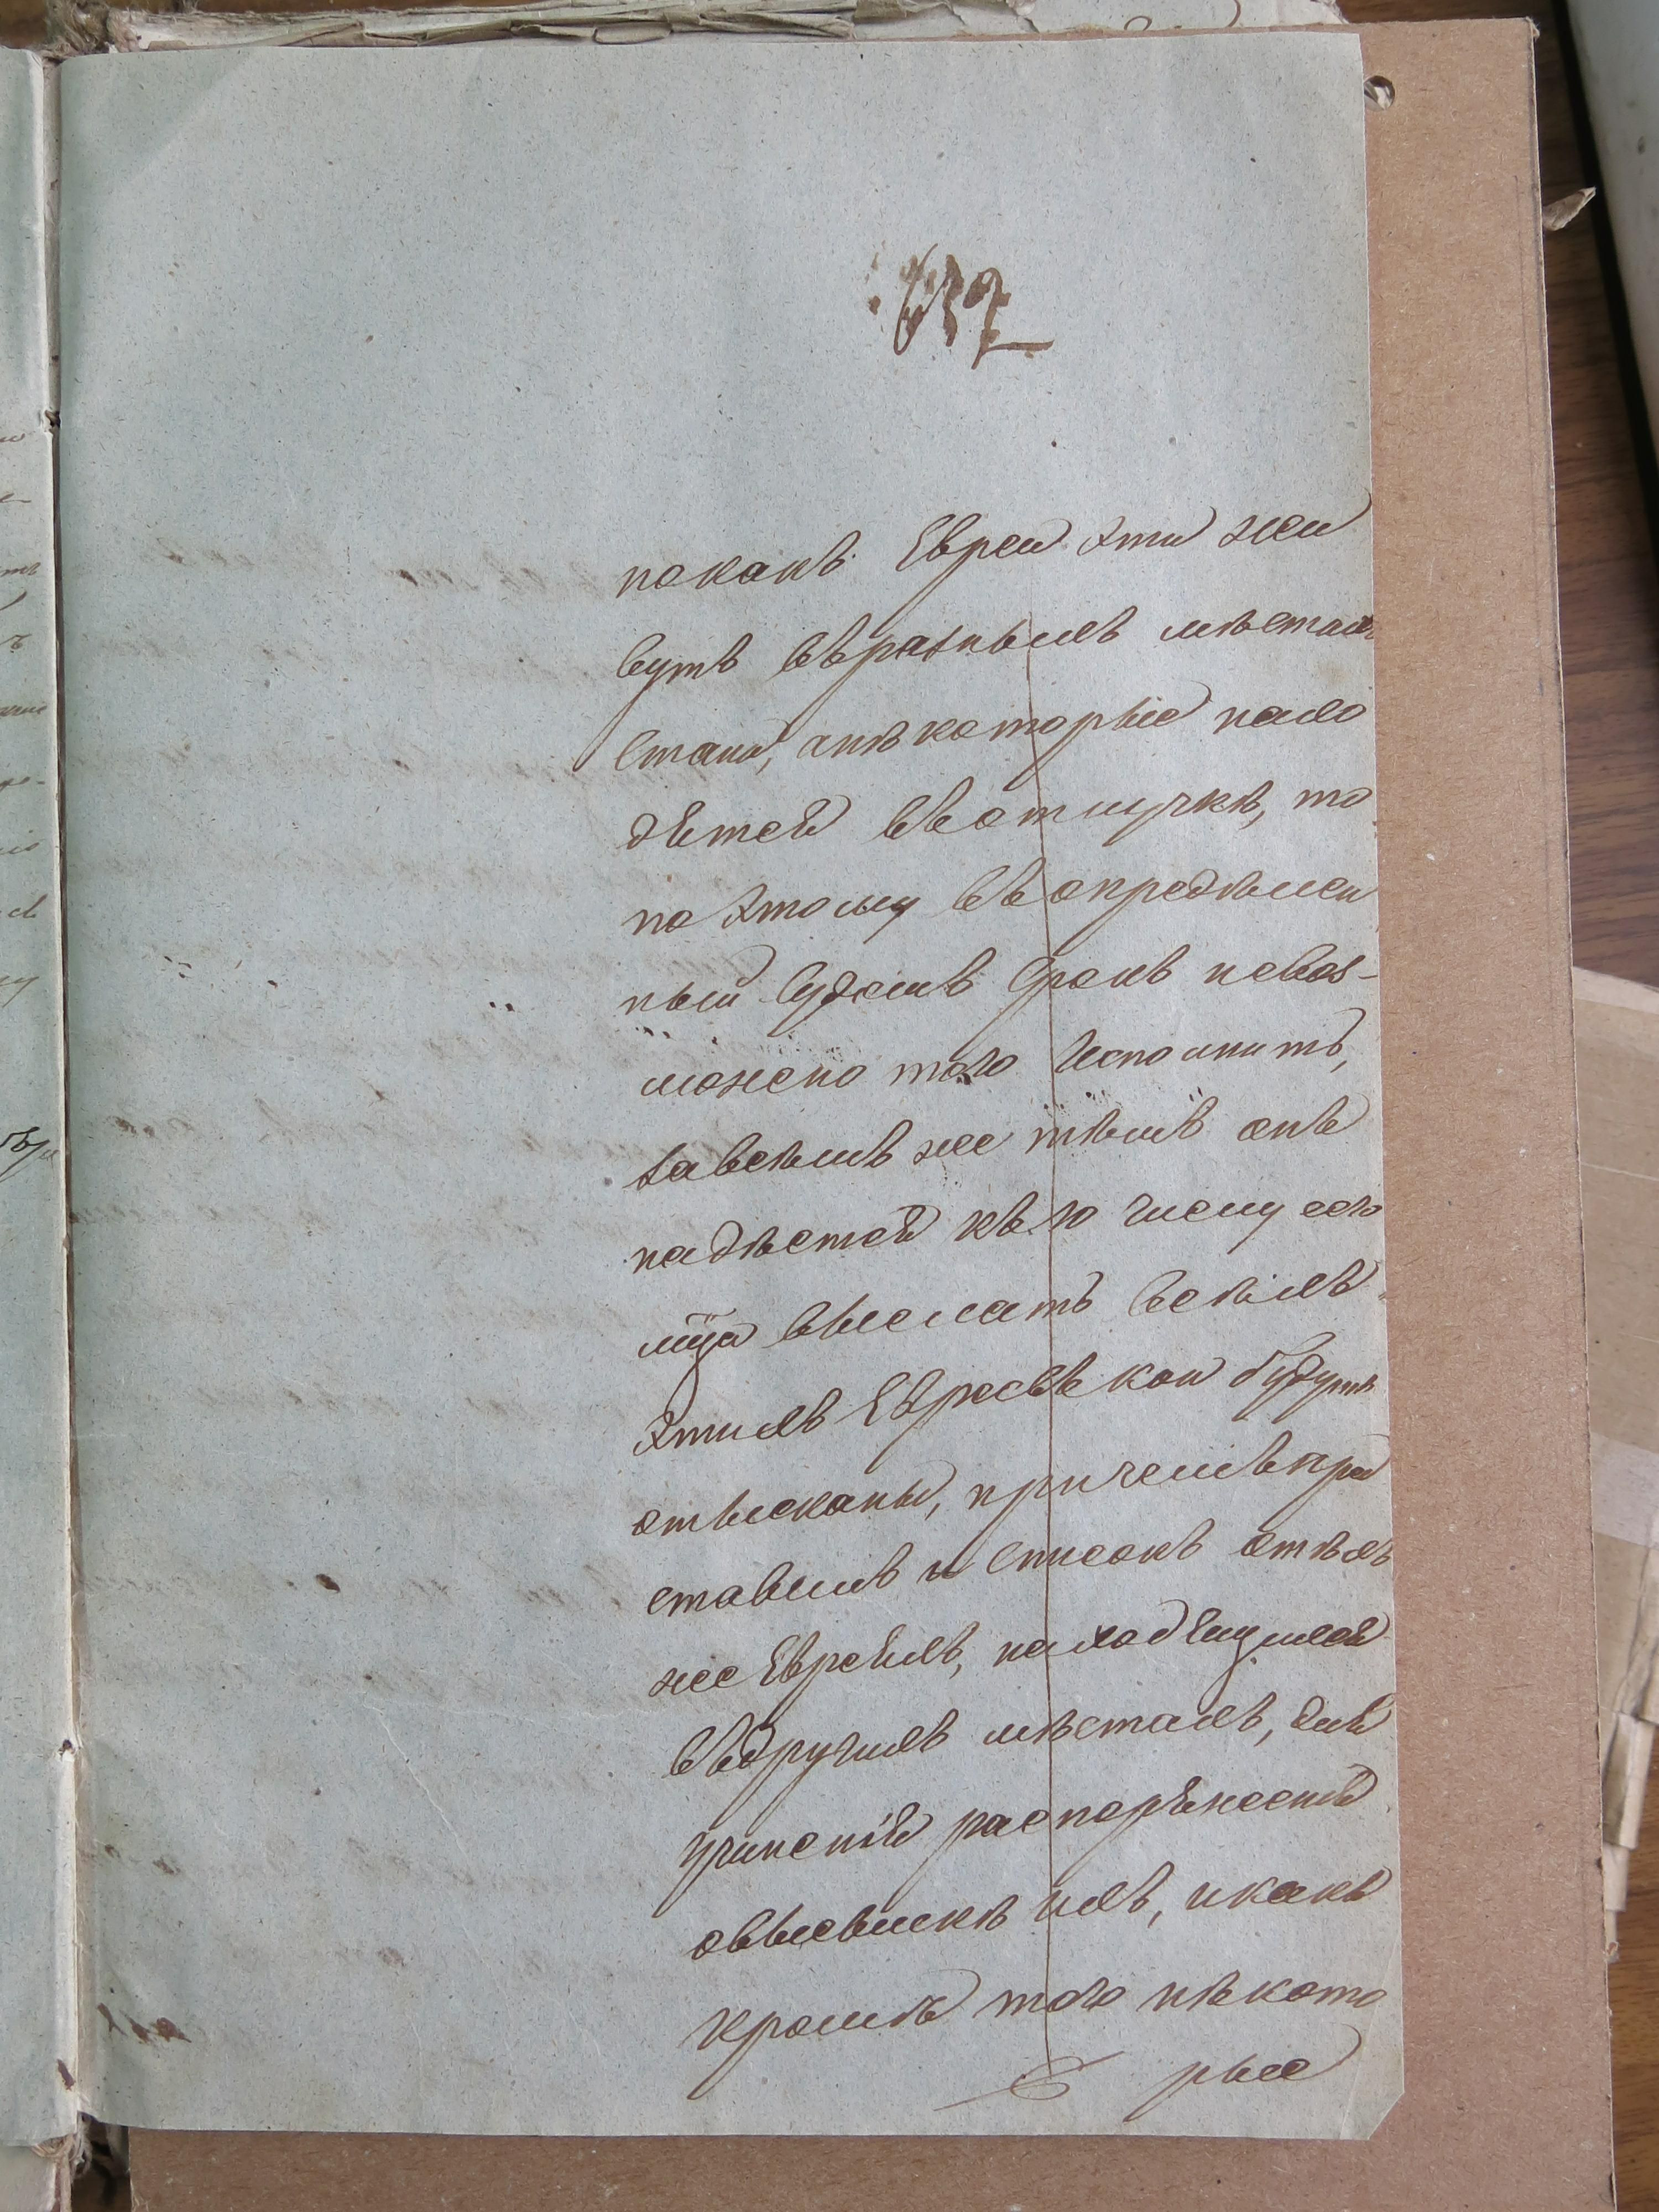 637
покакъ Евреи эти жи
вутъ въразныхъ мѣстахъ
Стана, анѣкоторые нахо
дятся въотлучкѣ, то
по этому въопредѣлен
ный Судомъ Срокъ невоз-
можно того Исполнить,
завсѣмъ же тѣмъ онъ
надѣется къ 10 числу сего
мца выслать всѣхъ
этихъ Евреевъ кои будутъ
отысканы, причемъ пред
ставитъ и списокъ отѣхъ
же Евреяхъ, находящихся
въдругихъ мѣстахъ, для
учиненія распоряженія
овысылкѣ ихъ, икакъ
кромѣ того нѣкото
рые